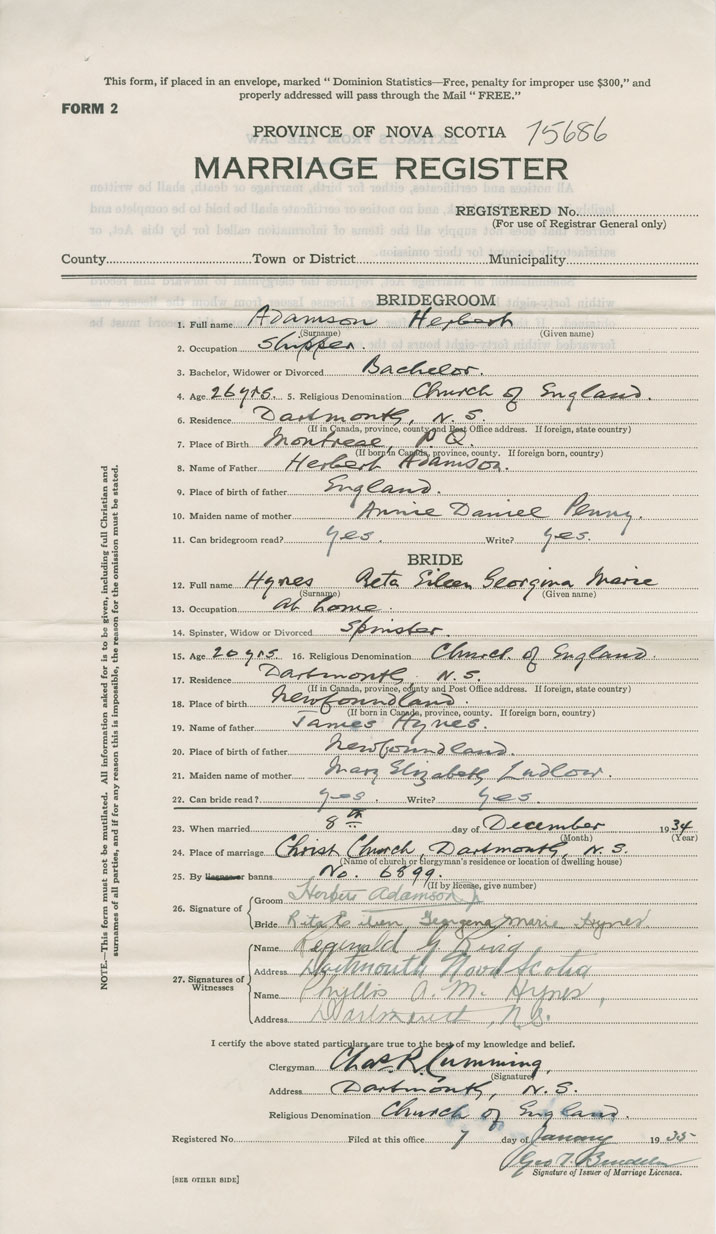 This form, if placed in an envelope, marked " Dominion Statistics—Free, penalty for improper use $300," and
properly addressed will pass through the Mail " FREE."
FORM 2
PROVINCE OF NOVA SCOTIA 15686
MARRIAGE REGISTER
REGISTERED No.
(For use of Registrar General only)
County Town or District Municipality
BRIDEGROOM
1. Full name Adamson Herbert
(Surname) (Given name)
2. Occupation Shipper.
3. Bachelor, Widower or Divorced Bachelor.
4. Age 26 yrs. 5. Religious Denomination Church of England.
6. Residence Dartmouth, N.S.
(If in Canada, province, county and Post Office address. If foreign, state country)
7. Place of Birth Montreal, P.Q.
(If born in Canada, province, county. If foreign born, country)
8. Name of Father Herbert Adamson.
9. Place of birth of father England.
10. Maiden name of mother Annie Daniel Penny.
11. Can bridegroom read? yes. Write? yes.
BRIDE
12. Full name Hynes Reta Eileen Georgina Marie
(Surname) (Given name)
13. Occupation at home.
14. Spinster, Widow or Divorced Spinster.
15. Age 20 yrs. 16. Religious Denomination Church of England.
17. Residence Dartmouth, N.S.
(If in Canada, province, county and Post Office address. If foreign, state country)
18. Place of birth Newfoundland.
(If born in Canada, province, county. If foreign born, country)
19. Name of father James Hynes.
20. Place of birth of father Newfoundland.
21. Maiden name of mother Mary Elizabeth Ludlow.
22. Can bride read? yes. Write? yes.
23. When married 8th day of December 1934
(Month) (Year)
24. Place of marriage Christ Church, Dartmouth, N.S.
(Name of church or clergyman's residence or location of dwelling house)
25. By license or banns No. 6899.
(If by license, give number)
26. Signature of
Groom Herbert Adamson Jr
Bride Rita Eileen Georgena Marie Hynes
27. Signatures of Witnesses
Name Reginald G
Address Dartmouth Nova Scotia
Name Phyllis A. M. Hynes,
Address Dartmouth, N.S.
I certify the above stated particulars are true to the best of my knowledge and belief.
Clergyman Chas. R. Cumming,
(Signature)
Address Dartmouth, N.S.
Religious Denomination Church of England.
Registered No. Filed at this office 7 day of January 1935
Geo T.
Signature of Issuer of Marriage Licenses.
[SEE OTHER SIDE]
NOTE.—This form must not be mutilated. All information asked for is to be given, including full Christian and
surnames of all parties, and if for any reason this is impossible, the reason for the omission must be stated.